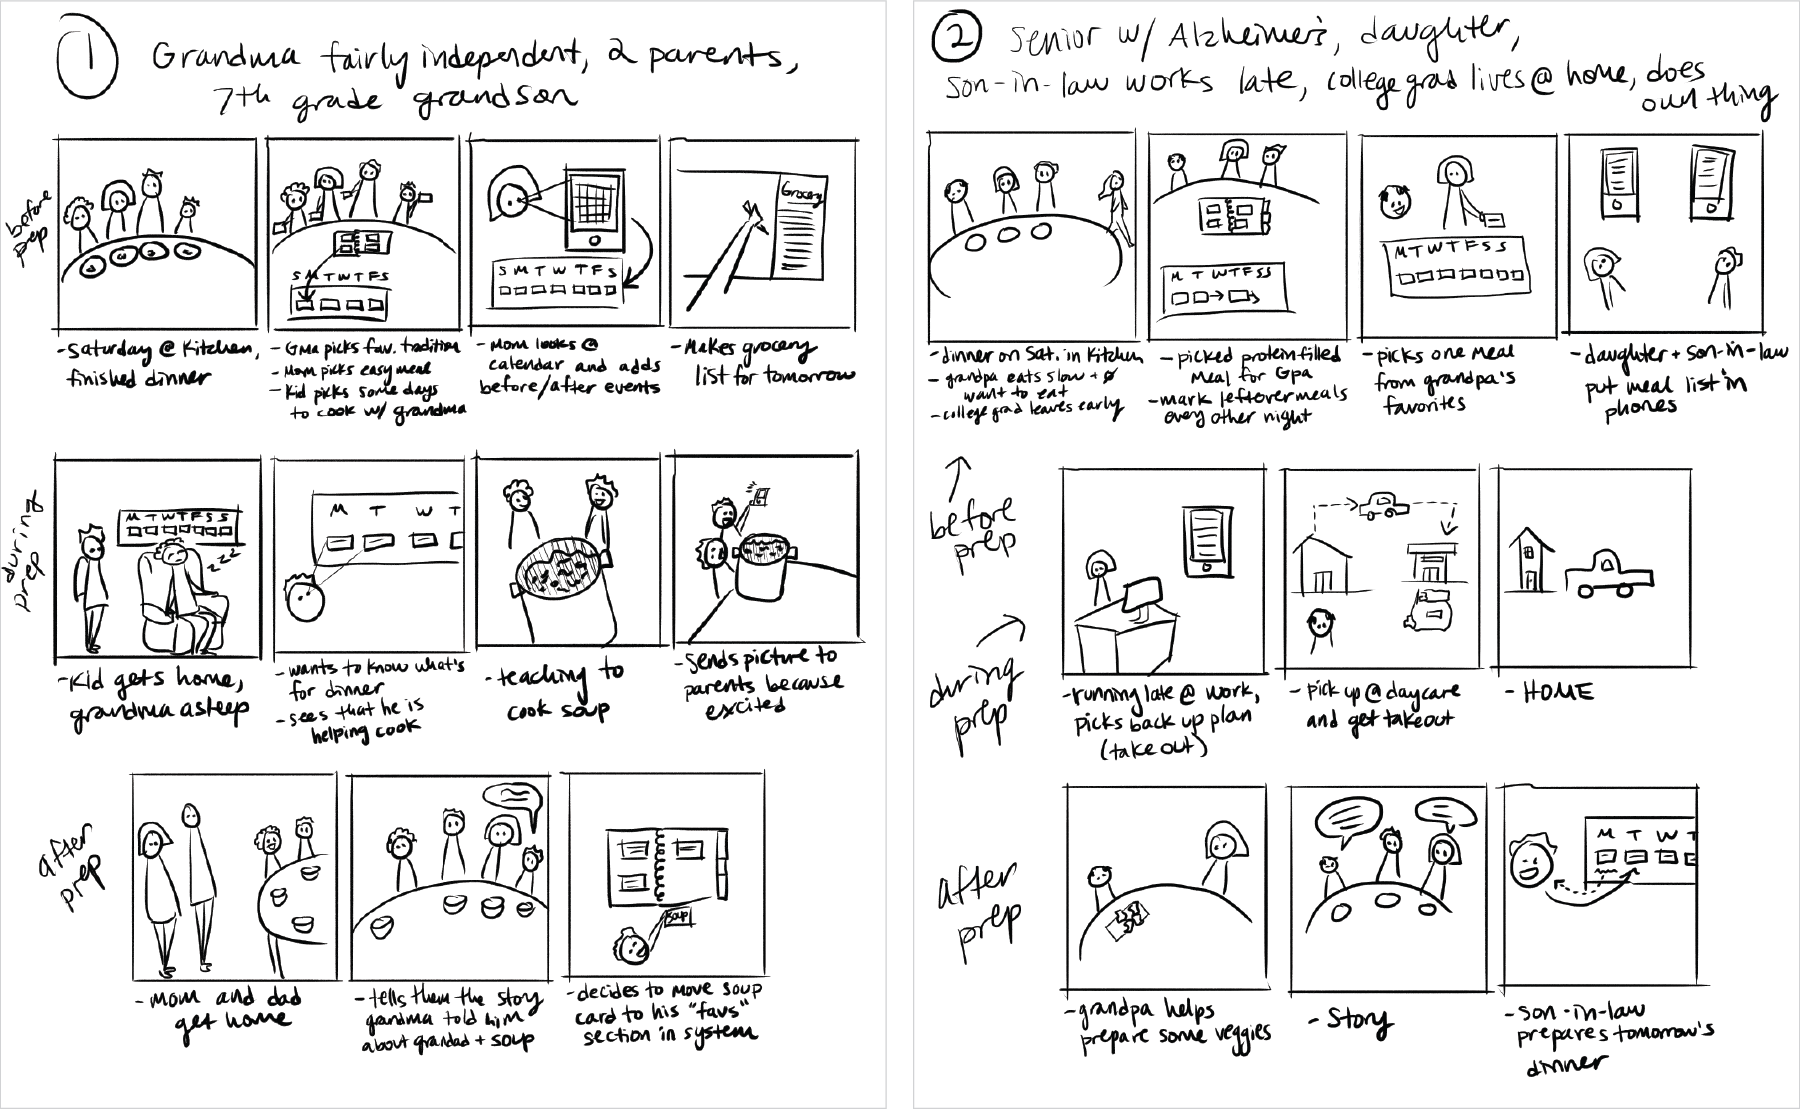 1
Grandma fairly independent, 2 parents,
7th grade grandson
before
prep
S M T W T F S
- Saturday @ Kitchen,
finished dinner
- Gma picks fav. tradition
- Mom picks easy meal
- Kid picks some days
to cook w/ grandma
S M T W T F S
- Mom looks @
calendar and adds
before/after events
Grocery
- Makes grocery
list for tomorrow
during
prep
M T W T F S S
zzz
- Kid gets home,
grandma asleep
M T W T
- wants to know what's
for dinner
- sees that he is
helping cook
- teaching to
cook soup
- Sends picture to
parents because
excited
after
prep
- mom and dad
get home
- tells them the story
grandma told him
about grandad + soup
soup
- decides to move soup
card to his "favs"
section in system
2
Senior w/ Alzheimer's, daughter,
son-in-law works late, college grad lives @ home, does
own thing
- dinner on Sat. in Kitchen
- grandpa eats slow + Ø
want to eat
- college grad leaves early
M T W T F S S
- picked protein filled
Meal for Gpa
- mark leftover meals
every other night
M T W T F S S
- picks one meal
from grandpa's
favorites
- daughter + son-in-law
put meal list in
phones
before
prep
during
prep
- running late @ work,
picks back up plan
(take out)
- pick up @ daycare
and get takeout
- HOME
after
prep
- grandpa helps
prepare some veggies
- Story
M T W T
- son-in-law
prepares tomorrow's
dinner